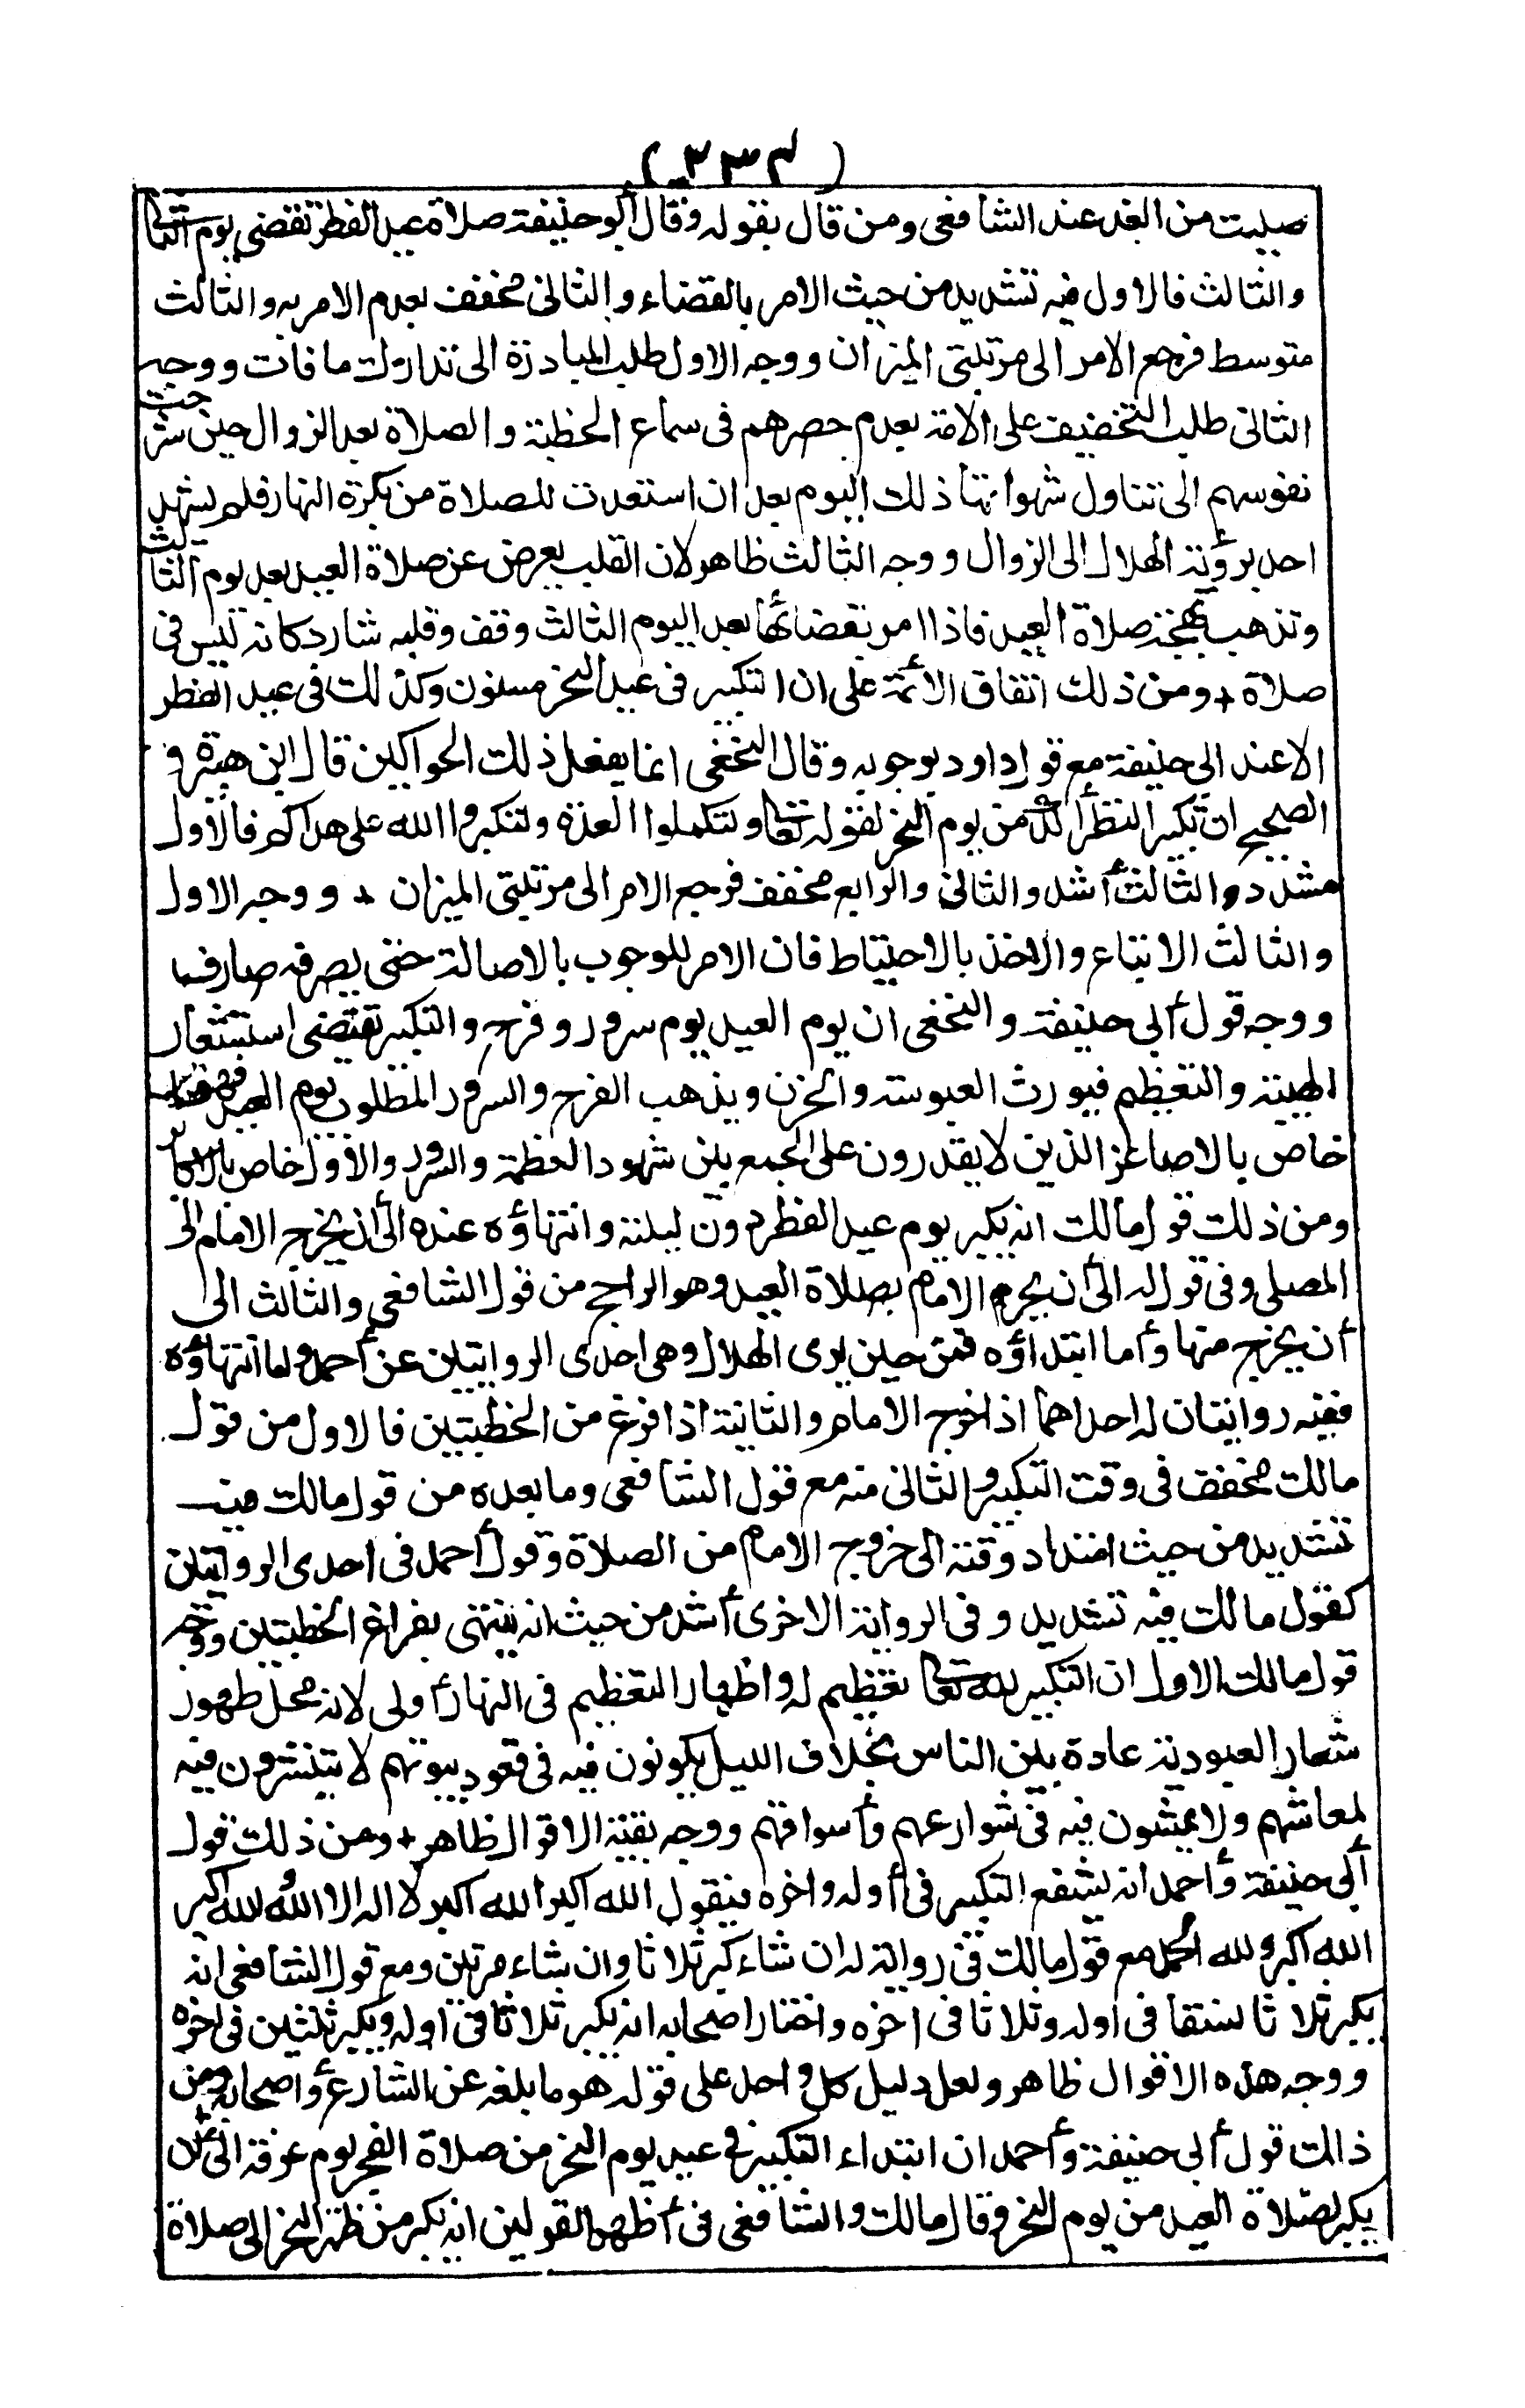 (٢٣٤)
صليت من الغد عند الشافعى ومن قال بقوله وقال أبو حنيفة صلاة عيد الفطر تقضى يوم الثانى
والثالث فالاول فيه تشديد من حيث الامر بالقضاء والثانى مخفف بعدم الامر به والثالث
متوسط فرجع الامر الى مرتبتى الميزان ووجه الاول طلب المبادرة الى تدارك ما فات ووجه
الثانى طلب التخفيف على الامة بعدم حصرهم فى سماع الخطبة والصلاة بعد الزوال حين شرحت
نفوسهم الى تناول شهواتها ذلك اليوم بعد ان استعدت للصلاة من بكرة النهار فلم يشهد
احد برؤية الهلال الى الزوال ووجه الثالث ظاهر لان القلب يعرض عن صلاة العيد بعد يوم الثالث
وتذهب بهجة صلاة العيد فاذا امر بقضائها بعد اليوم الثالث وقف وقلبه شارد كانه ليس فى
صلاة + ومن ذلك اتفاق الأئمة على ان التكبير فى عيد النحر مسنون وكذلك فى عيد الفطر
الا عند ابى حنيفة مع قول داود بوجوبه وقال النخعى انما يفعل ذلك الحواكين قال ابن هبيرة و
الصحيح ان تكبير الفطر آكد من يوم النحر لقوله تعالى ولتكملوا العدة ولتكبروا الله على هداكم فالأول
مشدد والثالث أشد والثانى والرابع مخفف فرجع الامر الى مرتبتى الميزان + ووجه الاول
والثالث الاتباع والاخذ بالاحتياط فان الامر للوجوب بالاصالة حتى يصرفه صارف
ووجه قول أبى حنيفة والنخعى ان يوم العيد يوم سرور وفرح والتكبير يقتضى استشعار
الهيبة والتعظيم فيورث العبوسة والحزن ويذهب الفرح والسرور المطلوب يوم العيد
خاص بالاصاغر الذين لا يقدرون على الجمع بين شهود العظمة والسرور والأول خاص بالاكابر
ومن ذلك قول مالك انه يكبر يوم عيد الفطر دون ليلته وانتهاؤه عنده الى أن يخرج الامام الى
المصلى وفى قول له الى أن يحرم الامام بصلاة العيد وهو الراجح من قول الشافعى والثالث الى
أن يخرج منها وأما ابتداؤه فمن حين يرى الهلال وهى احدى الروايتين عن أحمد وأما انتهاؤه
ففيه روايتان له احداهما اذا خرج الامام والثانية اذا فرغ من الخطبتين فالاول من قول
مالك مخفف فى وقت التكبير والثانى منه مع قول الشافعى وما بعده من قول مالك فيه
تشديد من حيث امتداد وقته الى خروج الامام من الصلاة وقول أحمد فى احدى الروايتين
كقول مالك فيه تشديد وفى الرواية الاخرى أشد من حيث انه ينتهى بفراغ الخطبتين ووجه
قول مالك الاول ان التكبير لله تعالى تعظيم له واظهار التعظيم فى النهار أولى لانه محل ظهور
شعار العبودية عادة بين الناس بخلاف الليل يكونون فيه فى قعود بيوتهم لا ينتشرون فيه
لمعاشهم ولا يمشون فيه فى شوارعهم وأسواقهم ووجه بقية الاقوال ظاهر + ومن ذلك قول
أبى حنيفة وأحمد انه يشفع التكبير فى أوله واخره فيقول الله اكبر الله اكبر لا اله الا الله والله اكبر
الله اكبر ولله الحمد مع قول مالك فى رواية له ان شاء كبر ثلاثا وان شاء مرتين ومع قول الشافعى انه
يكبر ثلاثا نسقا فى اوله وثلاثا فى اخره واختار اصحابه انه يكبر ثلاثا فى اوله ويكبر ثنتين فى اخره
ووجه هذه الاقوال ظاهر ولعل دليل كل واحد على قوله هو ما بلغه عن الشارع أو اصحابه + ومن
ذالك قول أبى حنيفة وأحمد ان ابتداء التكبير فى عيد يوم النحر من صلاة الفجر يوم عرفة الى أن
يكبر لصلاة العيد من يوم النحر وقال مالك والشافعى فى أظهر القولين انه يكبر من ظهر النحر الى صلاة